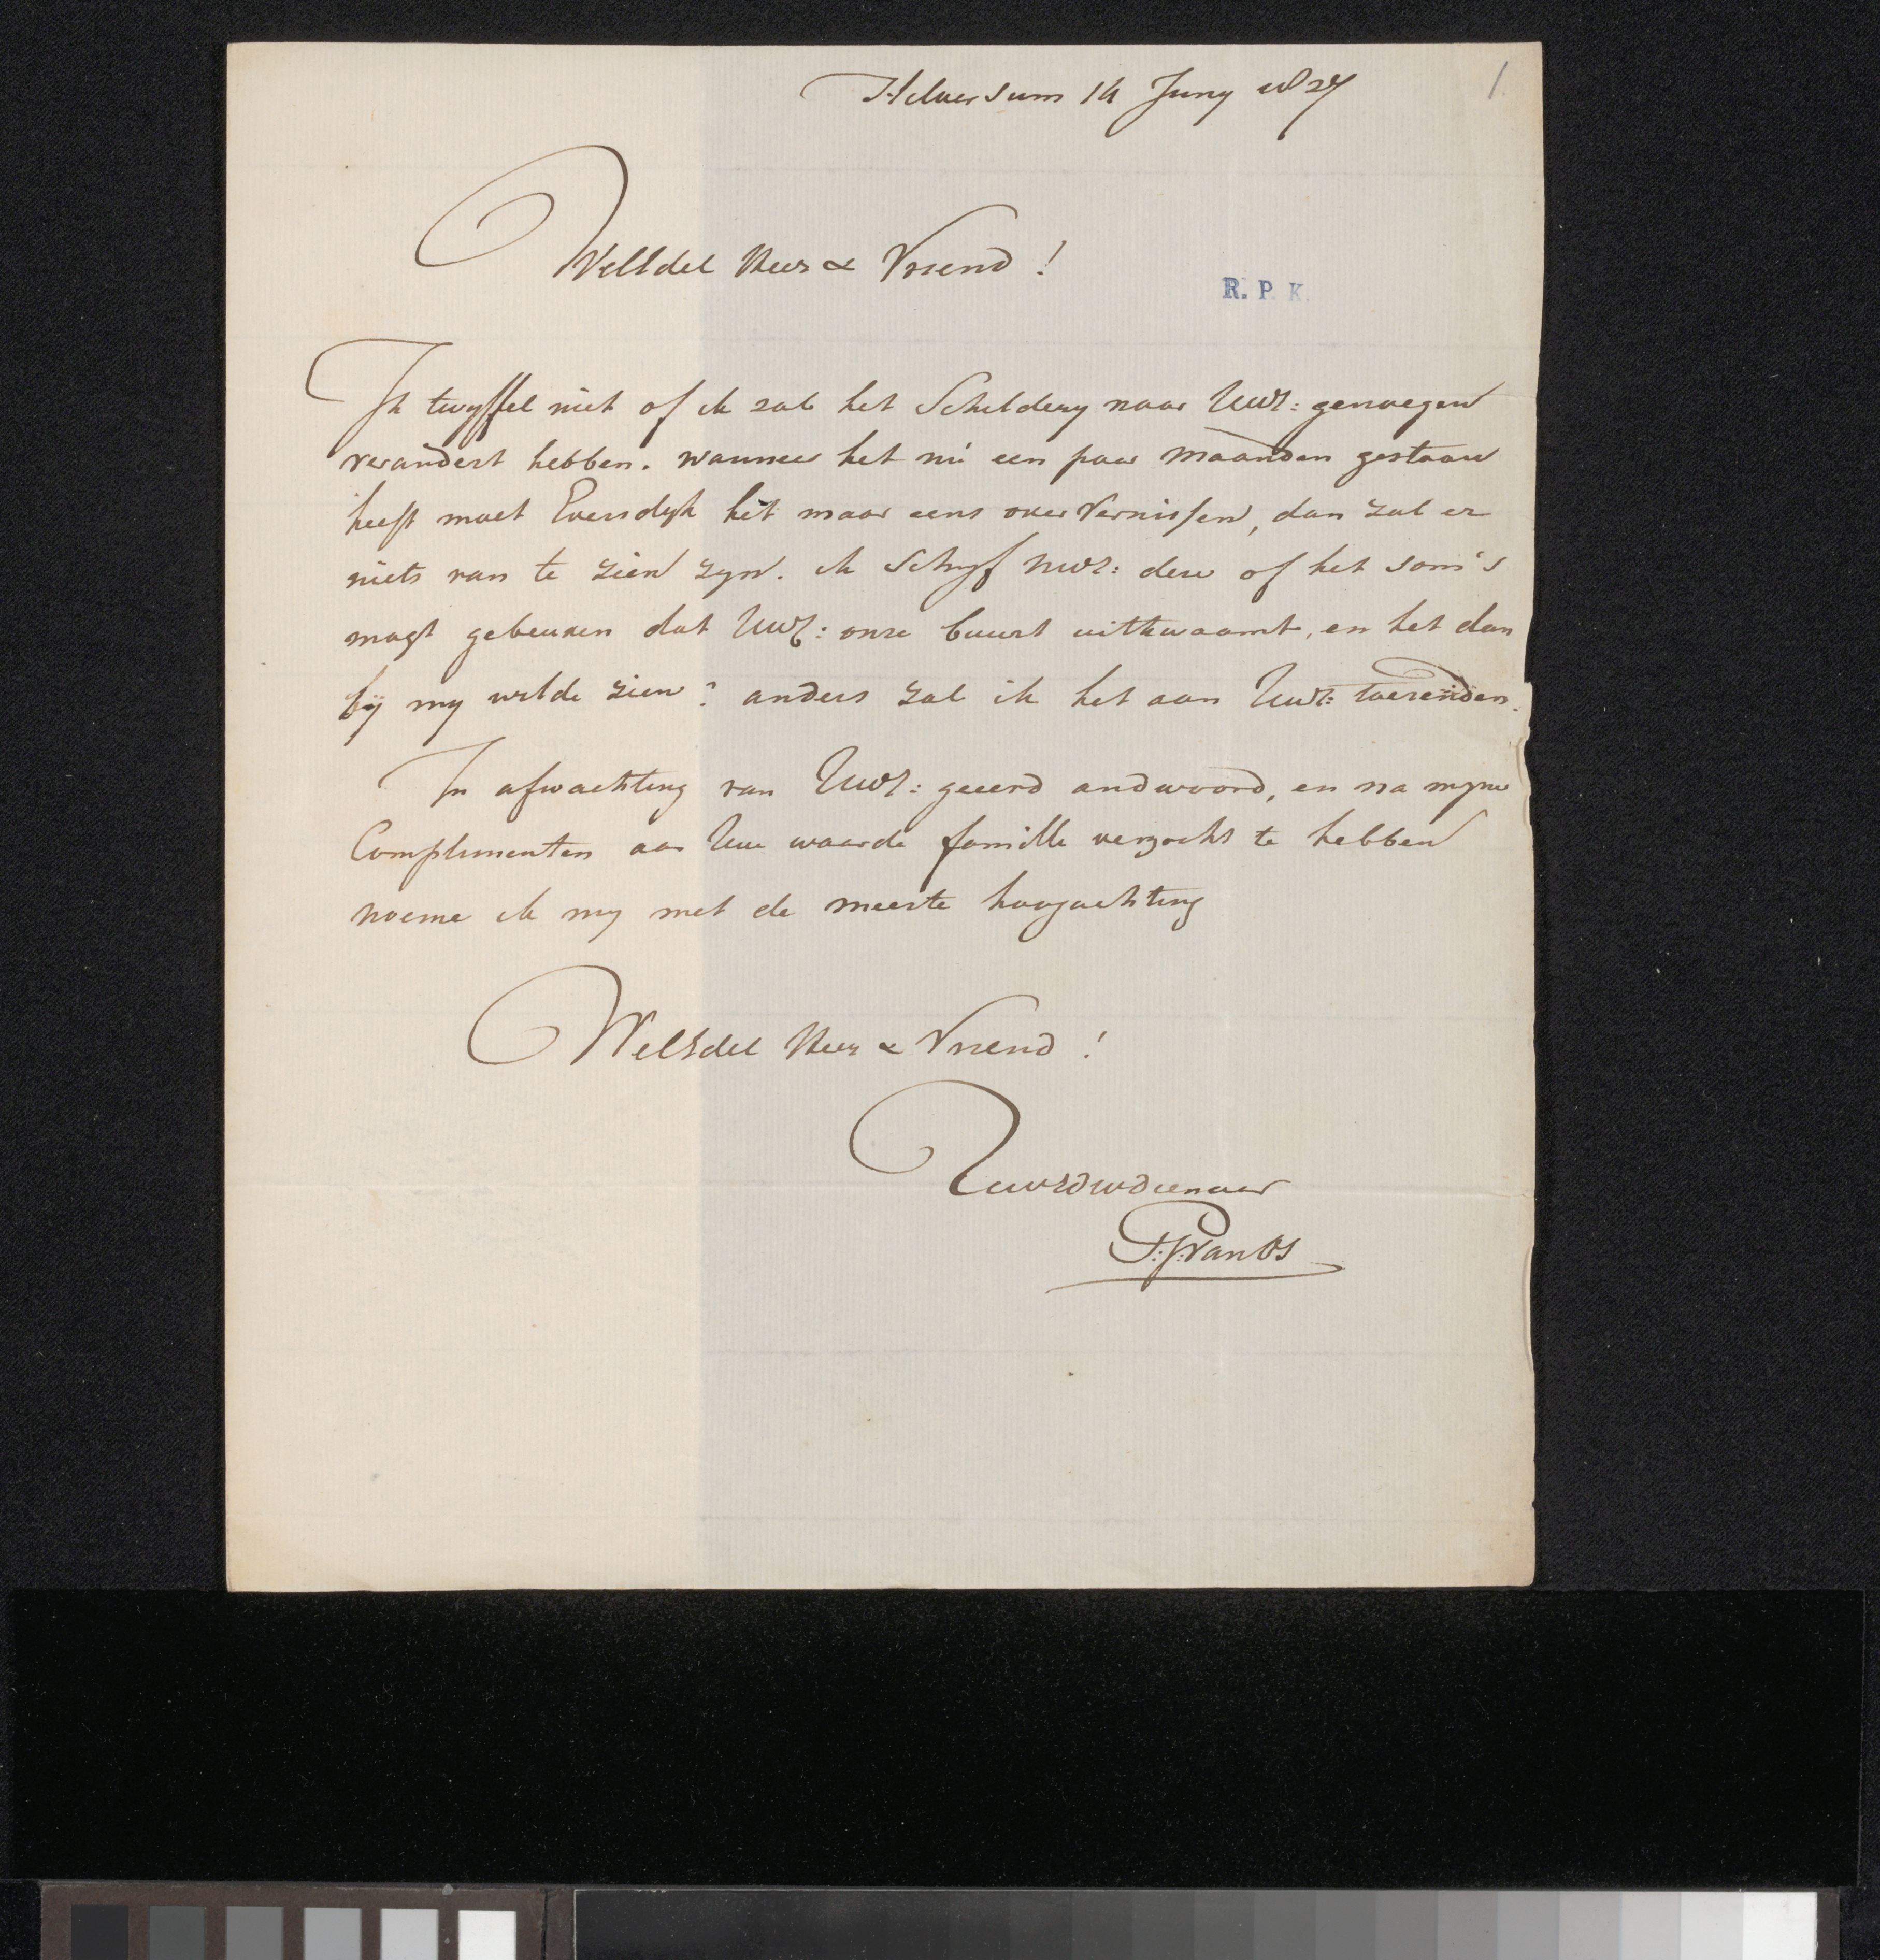 Hilversum 14 Juny 1827
1.
WelEdel Heer & Vriend!
R. P. K.
Ik twyffel niet of ik zal het Schildery naar UwE: genoegen
verandert hebben. wanneer het nu een paar maanden gestaan
heeft moet Eversdyk het maar eens over vernissen, dan zal er
niets van te zien zyn. ik schryf UwE: deze of het som's
mogt gebeuren dat UwE: onze buurt uitkwaamt, en het dan
by my wilde zien? anders zal ik het aan UwE: toezenden.
In afwachting van UwE: geeerd andwoord, en na myne
Complimenten aan Uwe waarde famille verzocht te hebben
noeme ik my met de meeste hoogachting
WelEdel Heer & Vriend!
UwEDWDienaar
P: G: Van Os